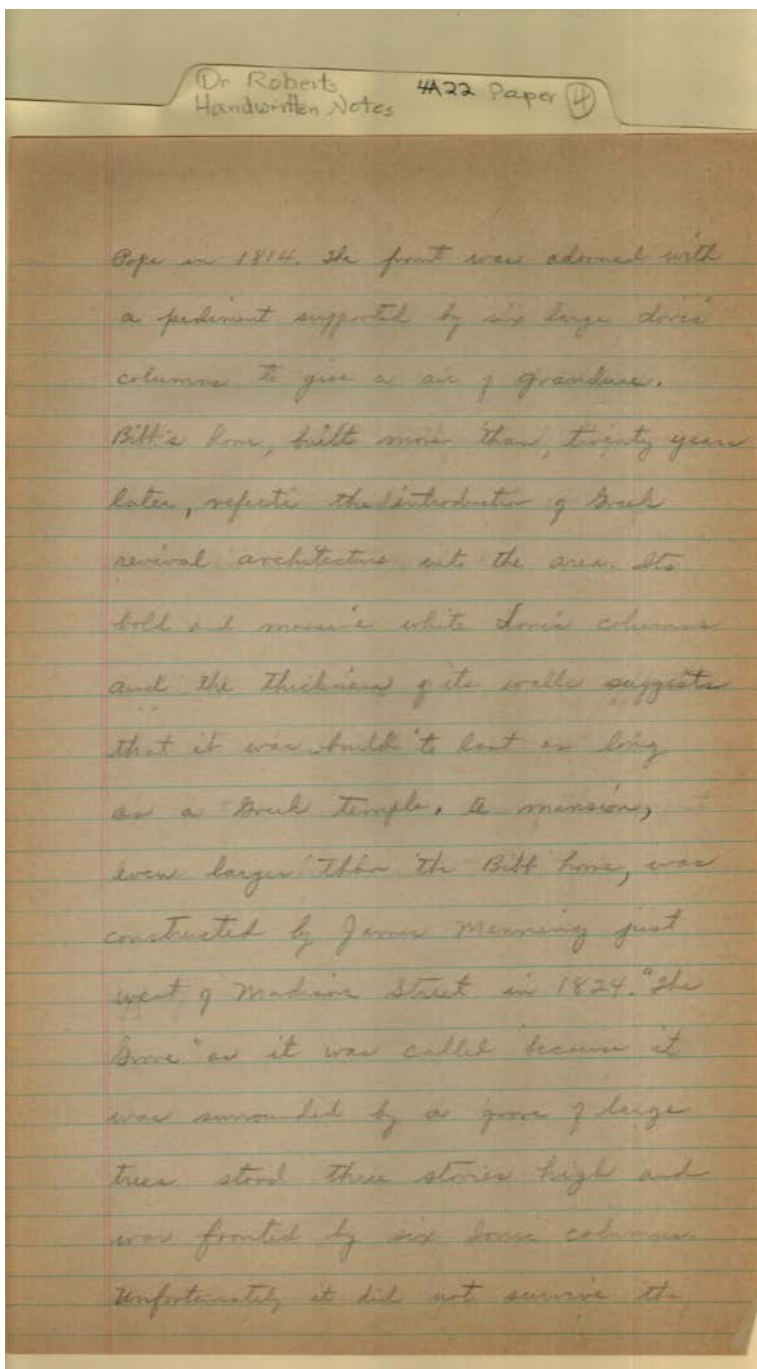 Dr Roberts 4A22 Paper 4
Handwritten Notes
Pope in 1814. The front was adorned with
a pediment supported by six large doric
columns to give a air of grandure.
Bibb's home, built more than twenty years
later, reflects the introduction of Greek
revival architecture into the area. Its
bold and massive white Ionic columns
and the thickness of its walls suggests
that it was build to last as long
as a Greek temple. A mansion,
even larger than the Bibb home, was
constructed by James Manning just
west of Madison Street in 1824. "The
Grove" as it was called because it
was surrounded by a grove of large
trees stood three stories high and
was fronted by six Ionic columns.
Unfortunately it did not survive the